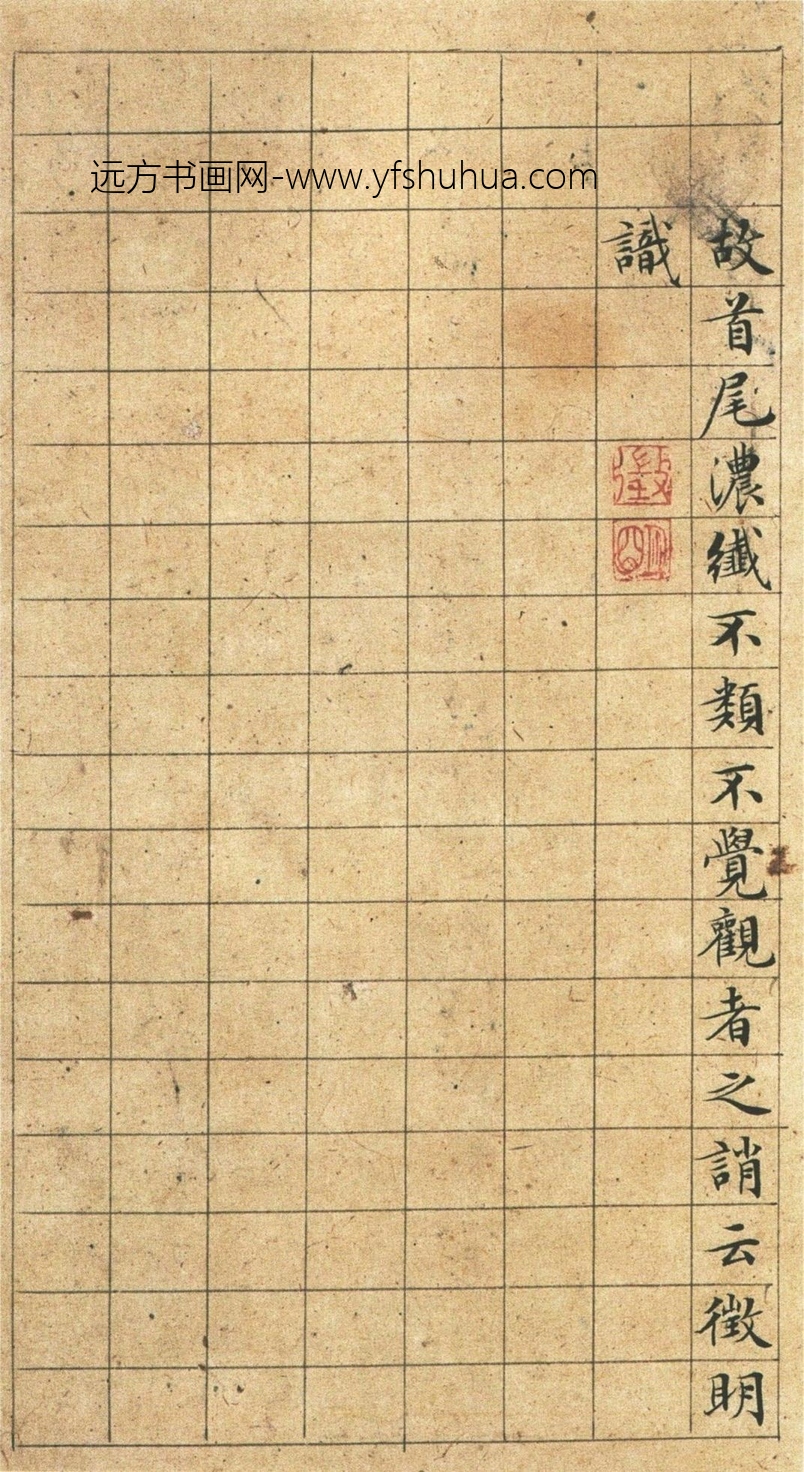 远方书画网-www.yfshuhua.com
故首尾濃纖不類不覺觀者之誚云徵明
識
徵
明